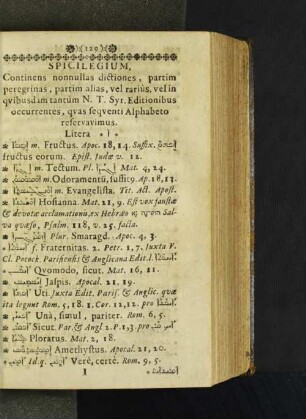 (120)
SPICILEGIUM,
Continens nonnullas dictiones, partim
peregrinas, partim alias, vel rariùs, vel in
qvibusdam tantùm N. T. Syr. Editionibus
occurrentes, qvas seqventi Alphabeto
reservavimus.
Litera
m. Fructus. Apoc. 18, 14. Suffix.
fructus eorum. Epist. Judæ v. 12.
m. Tectum. Pl. Mat. 4, 24.
m. Odoramentũ, suffit9. Ap. 18, 13.
m. Evangelista. Tit. Act. Apost.
Hosianna. Mat. 21, 9. Est vox faustæ
& devotæ acclamationis, ex Hebræo Sal
va qvæso, Psalm. 118, v. 25, facta.
Plur. Smaragd. Apoc. 4, 3.
f. Fraternitas. 2 Petr. 1, 7. juxta V.
Cl. Pocock. Parisiensis & Anglicana Edit. l.
Qvomodo, sicut. Mat. 16, 11.
Jaspis. Apocal. 21, 19.
Uti. Juxta Edit. Paris. & Anglic. quæ
ita legunt Rom. 5, 18. 1. Cor. 12, 12. pro
Unà, simul, pariter. Rom. 6, 5.
Sicut. Par. & Angl 2. P. 1, 3. pro
Ploratus. Mat. 2, 18.
Amethystus. Apocal. 21, 20.
Id. q. Verè, certè. Rom. 9, 5.
I